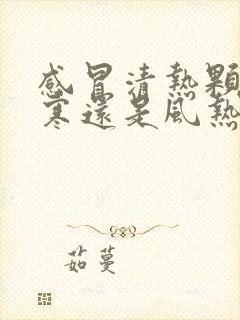 感冒清熱顆
寒還是風熱
茹蔓